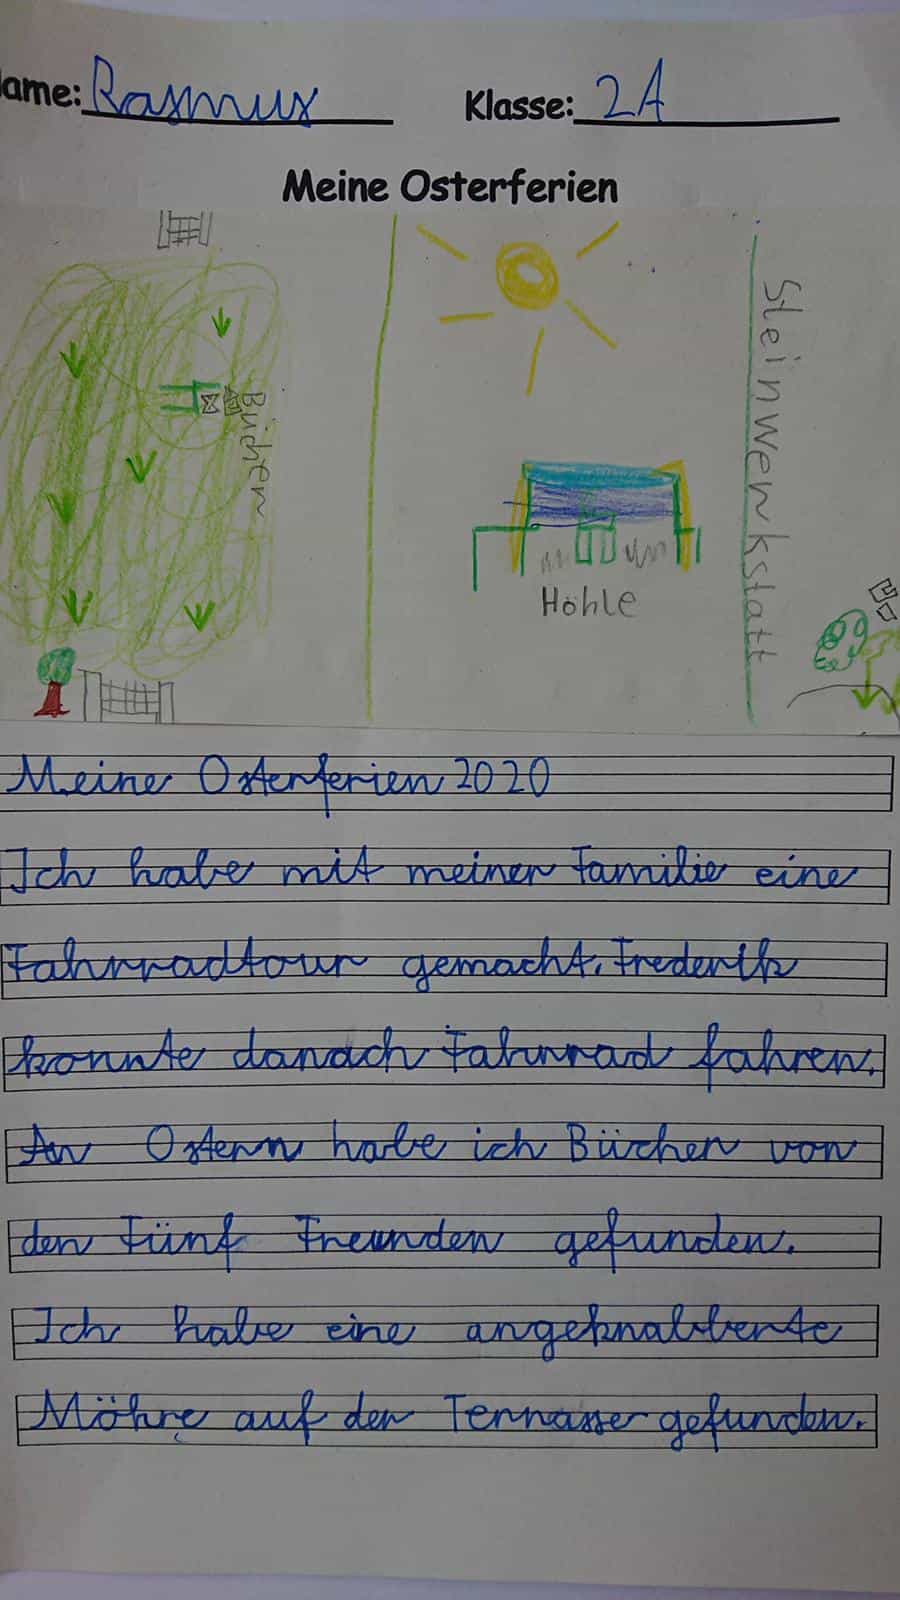 Name: Rasmus
Klasse: 2A
Meine Osterferien
Bücher
Höhle
Steinwerkstatt
Meine Osterferien 2020
Ich habe mit meiner Familie eine
Fahrradtour gemacht. Frederik
konnte danach Fahrrad fahren.
An Ostern habe ich Bücher von
den Fünf Freunden gefunden.
Ich habe eine angeknabberte
Möhre auf der Terrasse gefunden.